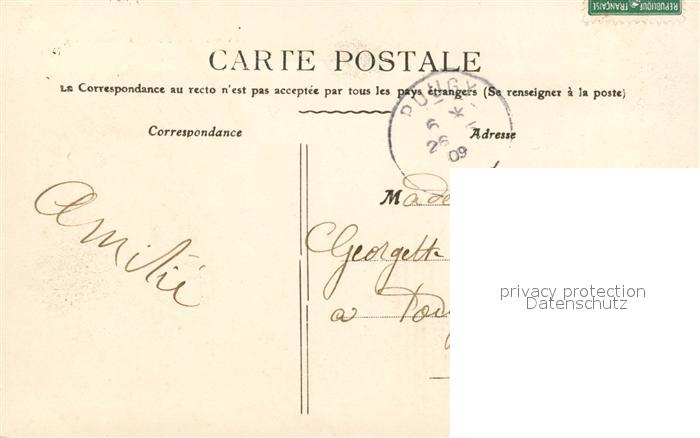 RÉPUBLIQUE FRANÇAISE
CARTE POSTALE
LE Correspondance au recto n'est pas acceptée par tous les pays étrangers (Se renseigner à la poste)
POUGY
26 09
Correspondance
Adresse
Amitié
Made
Georgette
à Poug
privacy protection
Datenschutz